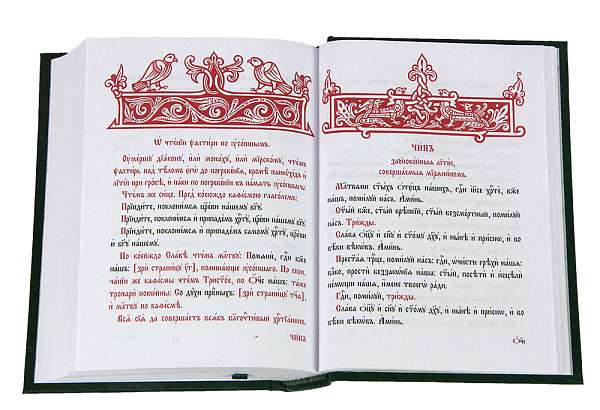 Ѡ чте́нїи ѱалти́ри по ᲂу҆со́пшымъ.
Оу҆ме́ршу дїа́кону, и҆лѝ мона́ху, и҆лѝ мїрско́му, чте́мъ
ѱалти́рь над̾ тѣ́ломъ є҆гѡ̀ до погребе́нїѧ, кромѣ̀ паннѷхі́дъ и҆
лїті́й при гро́бѣ, и҆ па́ки по погребе́нїи въ па́мѧть ᲂу҆со́пшагѡ.
Чте́мъ же си́це. Пред̾ коею́ждо каѳі́смою глаго́лемъ:
Прїиди́те, поклони́мсѧ цр҃е́ви на́шему бг҃у.
Прїиди́те, поклони́мсѧ и҆ припаде́мъ хрⷭ҇ту̀, цр҃е́ви на́шему бг҃у.
Прїиди́те, поклони́мсѧ и҆ припаде́мъ самому̀ хрⷭ҇ту̀, цр҃е́ви
и҆ бг҃у на́шему.
По кое́йждо Сла́вѣ чте́мъ мл҃тву: Помѧнѝ, гдⷭ҇и бж҃е
на́шъ: [зрѝ страни́цу], помина́юще ᲂу҆со́пшаго. По скон-
ча́нїи же каѳі́смы чте́мъ Трист҃о́е, по Ѻ҆́ч҃е на́шъ: та́же
тропарѝ покаѧ́нны: Со дꙋ́хи првⷣныхъ: [зрѝ страни́цу],
и҆ мл҃тву по каѳі́смѣ.
Всѧ̑ сїѧ̑ да соверша́етъ всѧ́къ бл҃гочⷭ҇ти́вый хрⷭ҇тїани́нъ.
ЧИ́НЪ
ЧИ́НЪ
заупоко́йныѧ лїті́и,
соверша́емыѧ мїрѧни́номъ.
Мл҃твами ст҃ы́хъ ѻ҆тє́цъ на́шихъ, гдⷭ҇и і҆и҃се хрⷭ҇тѐ, бж҃е
на́шъ, поми́луй на́съ. А҆ми́нь.
Ст҃ы́й бж҃е, ст҃ы́й крѣ́пкїй, ст҃ы́й безсме́ртный, поми́луй
на́съ. Три́жды.
Сла́ва ѻ҆ц҃у̀ и҆ сн҃у и҆ ст҃о́му дх҃у, и҆ ны́нѣ и҆ при́снѡ, и҆ во
вѣ́ки вѣкѡ́въ. А҆ми́нь.
Прест҃а́ѧ трⷪ҇це, поми́луй на́съ: гдⷭ҇и, ѡ҆чи́сти грѣхѝ на́шѧ:
влⷣко, простѝ беззакѡ́нїѧ на̑ша: ст҃ы́й, посѣтѝ и҆ и҆сцѣлѝ
не́мѡщи на́шѧ, и҆́мене твоегѡ̀ ра́ди.
Гдⷭ҇и, поми́луй, три́жды.
Сла́ва ѻ҆ц҃у̀ и҆ сн҃у и҆ ст҃о́му дх҃у, и҆ ны́нѣ и҆ при́снѡ, и҆ во
вѣ́ки вѣкѡ́въ. А҆ми́нь.
Ѻ҆́ч҃е